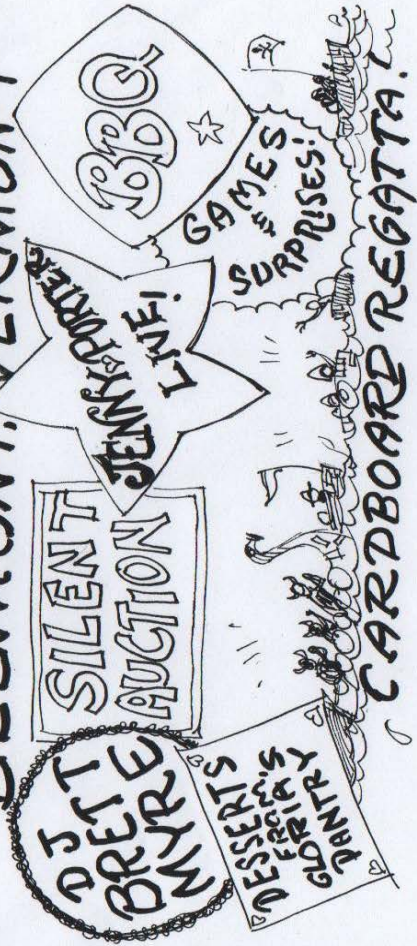 DJ
BRETT
MYRE
SILENT
AUCTION
JENNY PORTER
LIVE!
BBQ
DESSERTS
FROM
GLORIA'S
PANTRY
GAMES
&
SURPRISES!
CARDBOARD REGATTA!